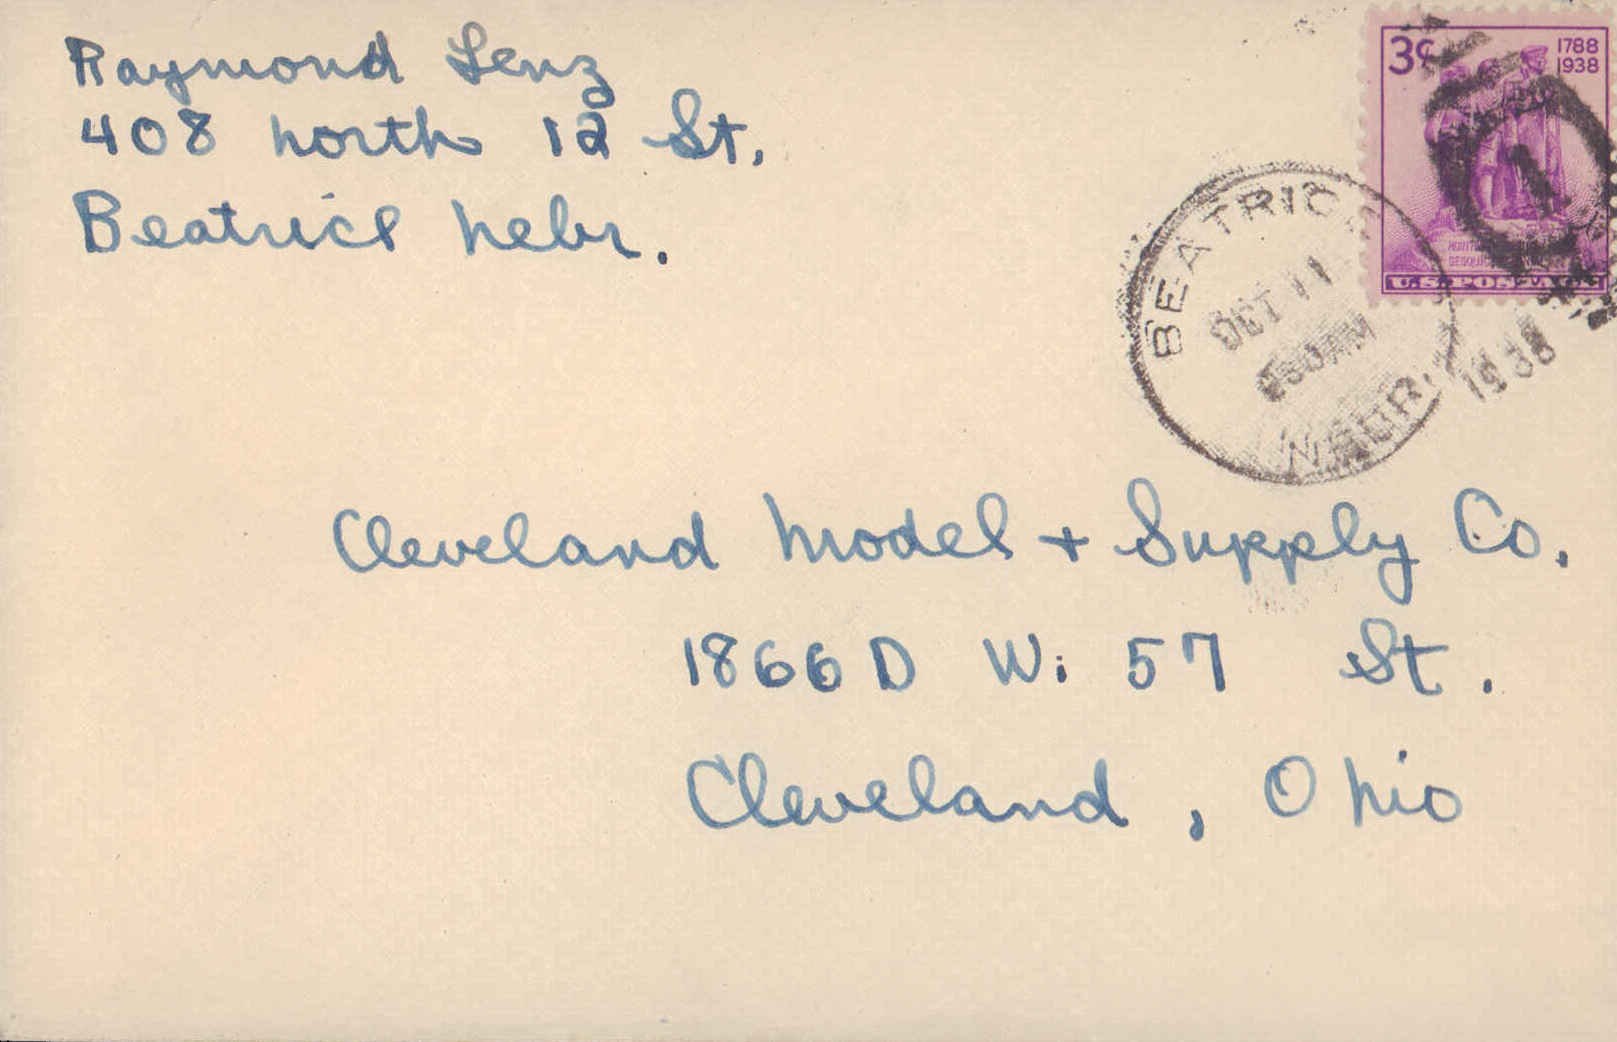 Raymond Lenz
408 North 12 St.
Beatrice Nebr.
3¢
1788
1938
U.S. POSTAGE
BEATRICE
OCT 11
AM
NEBR.
1938
Cleveland Model + Supply Co.
1866 D W. 57 St.
Cleveland, Ohio